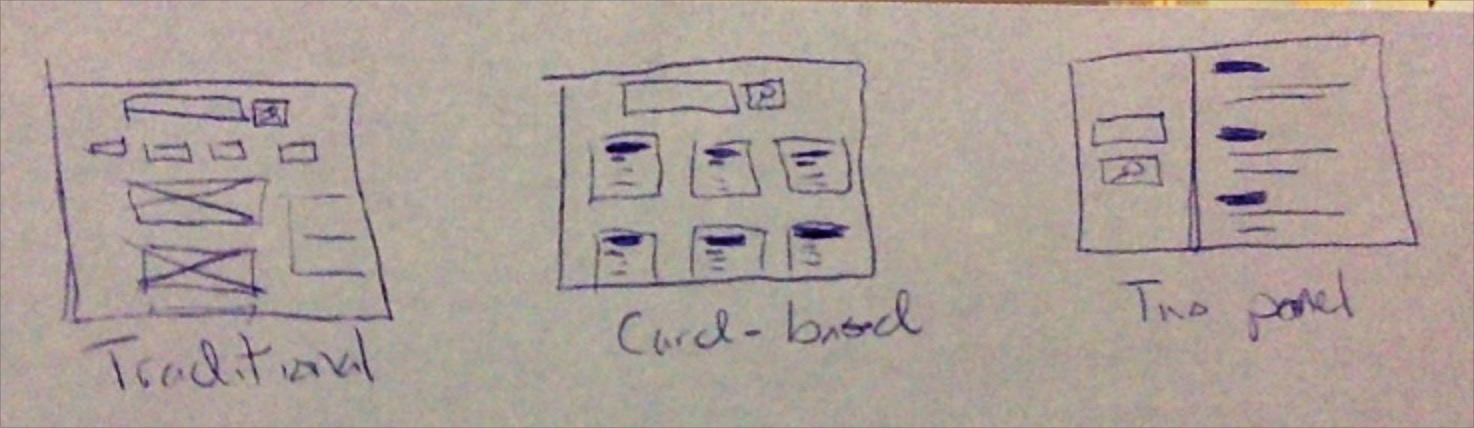 Traditional
Card-based
Two panel